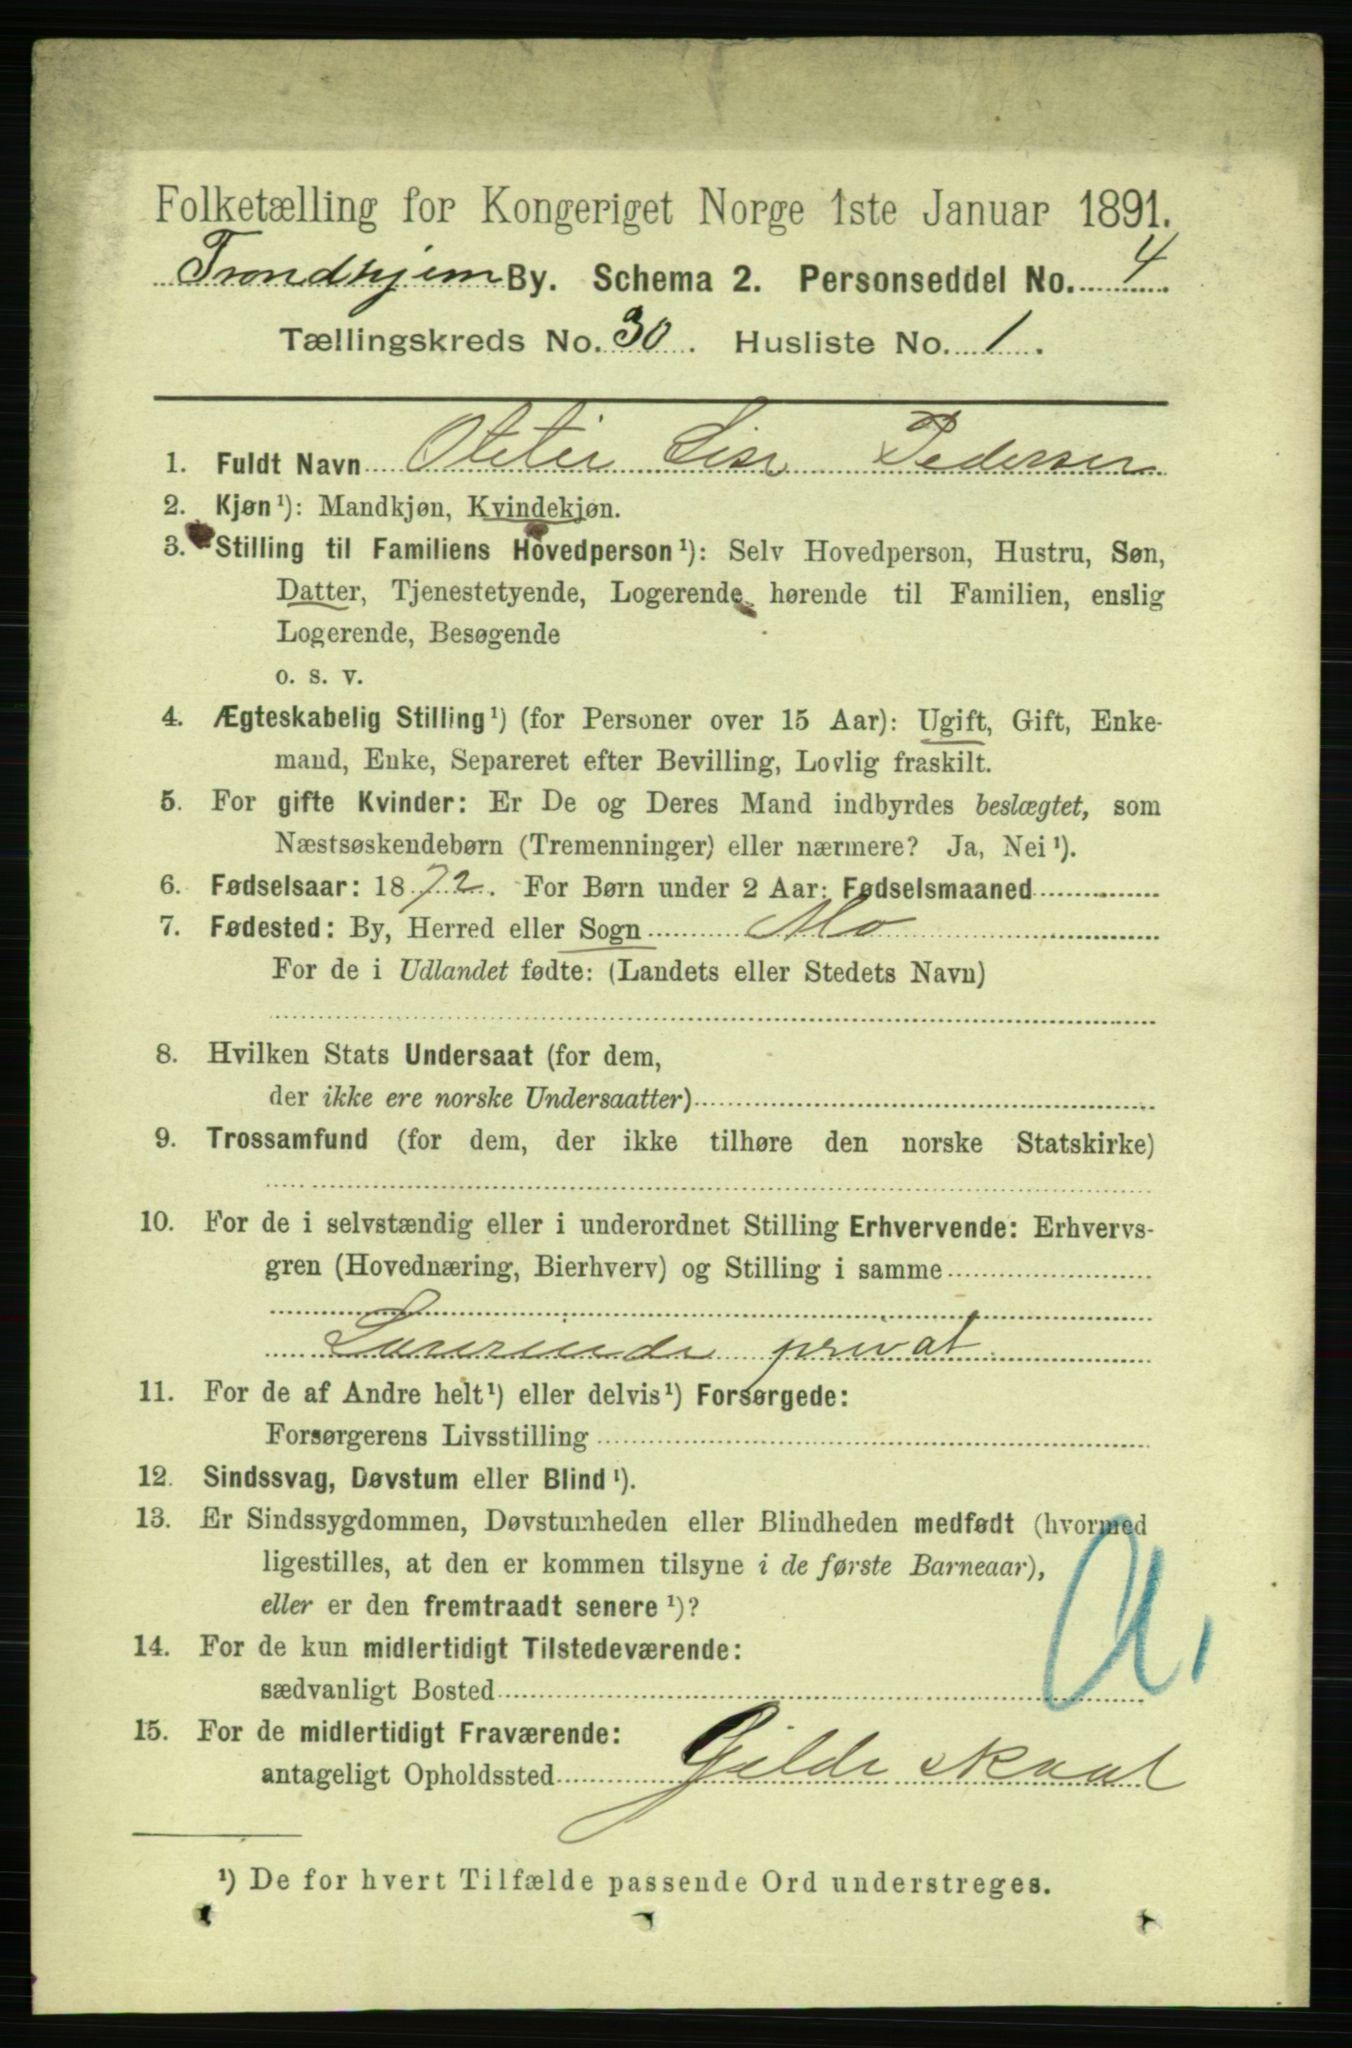 Folketælling for Kongeriget Norge 1ste Januar 1891.
Trondhjem By. Schema 2. Personseddel No. 4.
Tællingskreds No. 30. Husliste No. 1.
1. Fuldt Navn Lise Pedersen
2. Kjøn ¹): Mandkjøn, Kvindekjøn.
3. Stilling til Familiens Hovedperson ¹): Selv Hovedperson, Hustru, Søn,
Datter, Tjenestetyende, Logerende hørende til Familien, enslig
Logerende, Besøgende
o. s. v.
4. Ægteskabelig Stilling ¹) (for Personer over 15 Aar): Ugift, Gift, Enke-
mand, Enke, Separeret efter Bevilling, Lovlig fraskilt.
5. For gifte Kvinder: Er De og Deres Mand indbyrdes beslægtet, som
Næstsøskendebørn (Tremenninger) eller nærmere? Ja, Nei ¹).
6. Fødselsaar: 1872. For Børn under 2 Aar: Fødselsmaaned
7. Fødested: By, Herred eller Sogn Mo
For de i Udlandet fødte: (Landets eller Stedets Navn)
8. Hvilken Stats Undersaat (for dem,
der ikke ere norske Undersaatter)
9. Trossamfund (for dem, der ikke tilhøre den norske Statskirke)
10. For de i selvstændig eller i underordnet Stilling Erhvervende: Erhvervs-
gren (Hovednæring, Bierhverv) og Stilling i samme
Lærerinde privat
11. For de af Andre helt ¹) eller delvis ¹) Forsørgede:
Forsørgerens Livsstilling
12. Sindssvag, Døvstum eller Blind ¹).
13. Er Sindssygdommen, Døvstumheden eller Blindheden medfødt (hvormed
ligestilles, at den er kommen tilsyne i de første Barneaar),
eller er den fremtraadt senere ¹)?
14. For de kun midlertidigt Tilstedeværende:
sædvanligt Bosted
15. For de midlertidigt Fraværende:
antageligt Opholdssted Gildeskaal
¹) De for hvert Tilfælde passende Ord understreges.